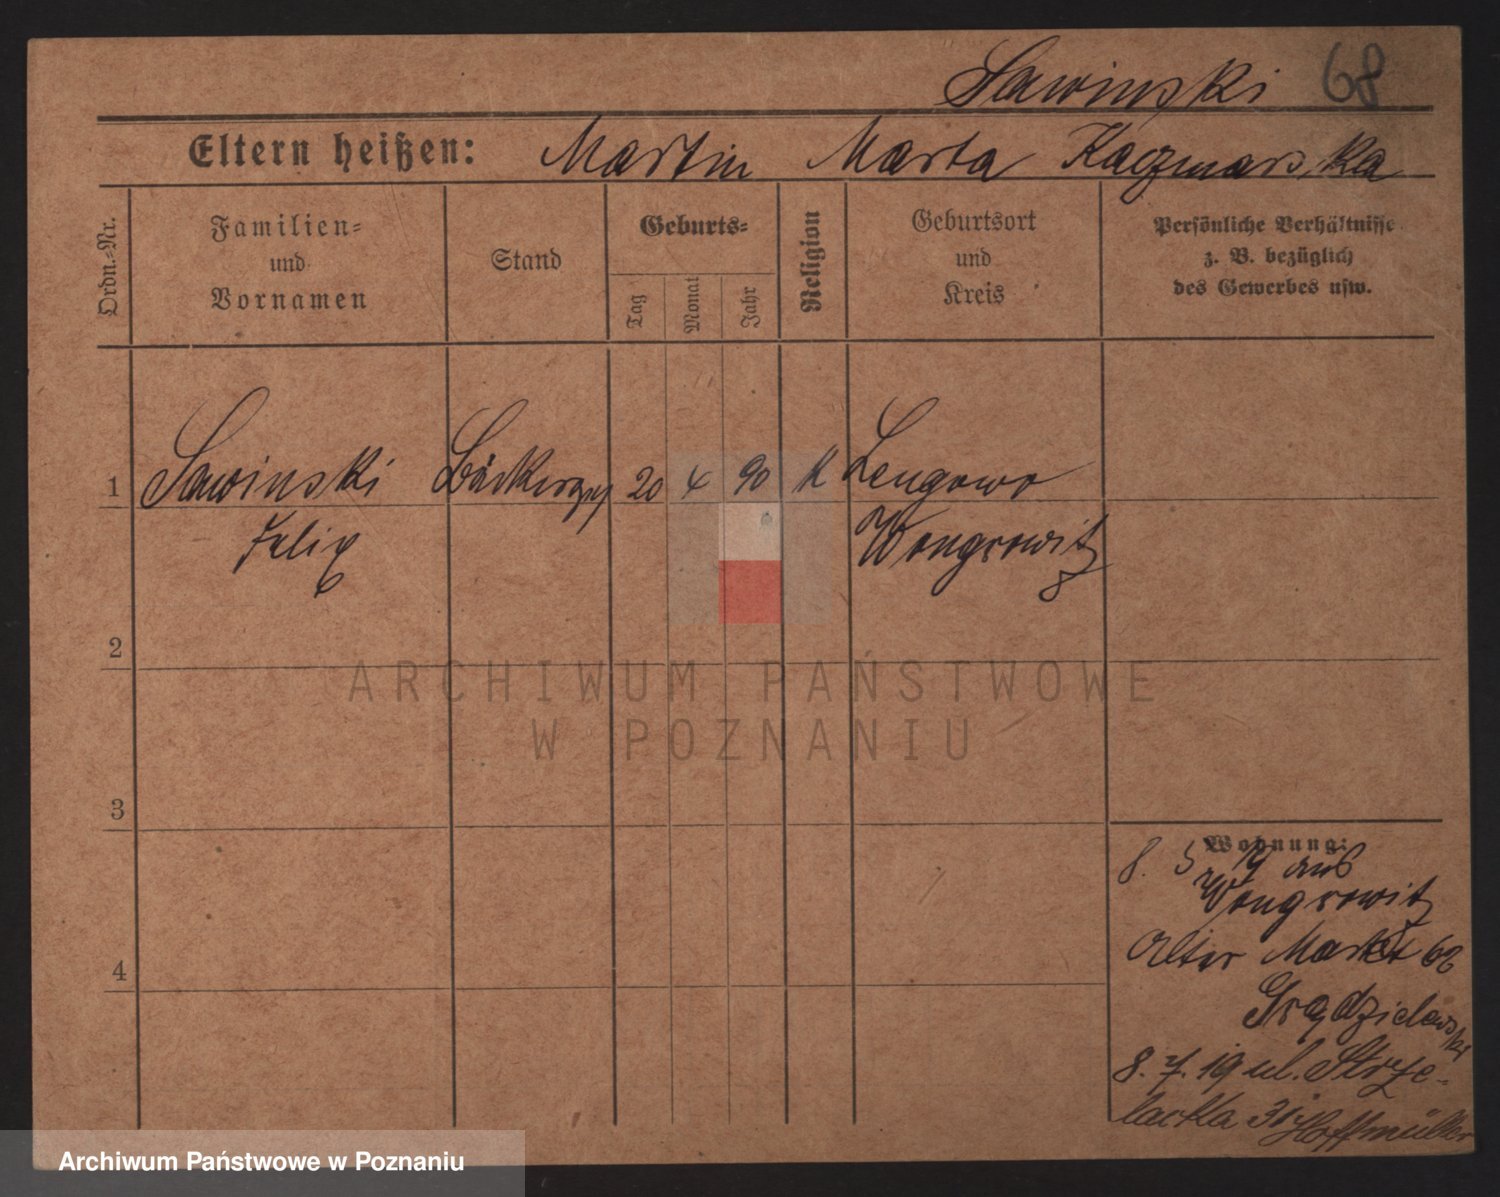 Sawinski 68
Eltern heißen: Martin Marta Kaczmarska
Ordn.-Nr.
Familien-
und
Vornamen
Stand
Geburts-
Tag
Monat
Jahr
Religion
Geburtsort
und
Kreis
Persönliche Verhältnisse
z. B. bezüglich
des Gewerbes usw.
1 Sawinski Bäckerges 20 4 90 K Lengowo
Felix Wongrowitz
2
3
4
Wohnung:
8. 5 19 aus
Wongrowitz
Alter Markt 68
8. 7. 19 ul. Strze-
lecka 31 Hoffmüller
ARCHIWUM PAŃSTWOWE
W POZNANIU
Archiwum Państwowe w Poznaniu